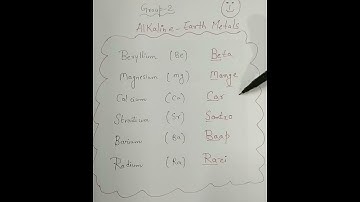 Group-2
Alkaline-Earth Metals
Beryllium (Be) Beta
Magnesium (mg) Mange
Calcium (Ca) Car
Strontium (Sr)
Barium (Ba) Baap
Radium (Ra)